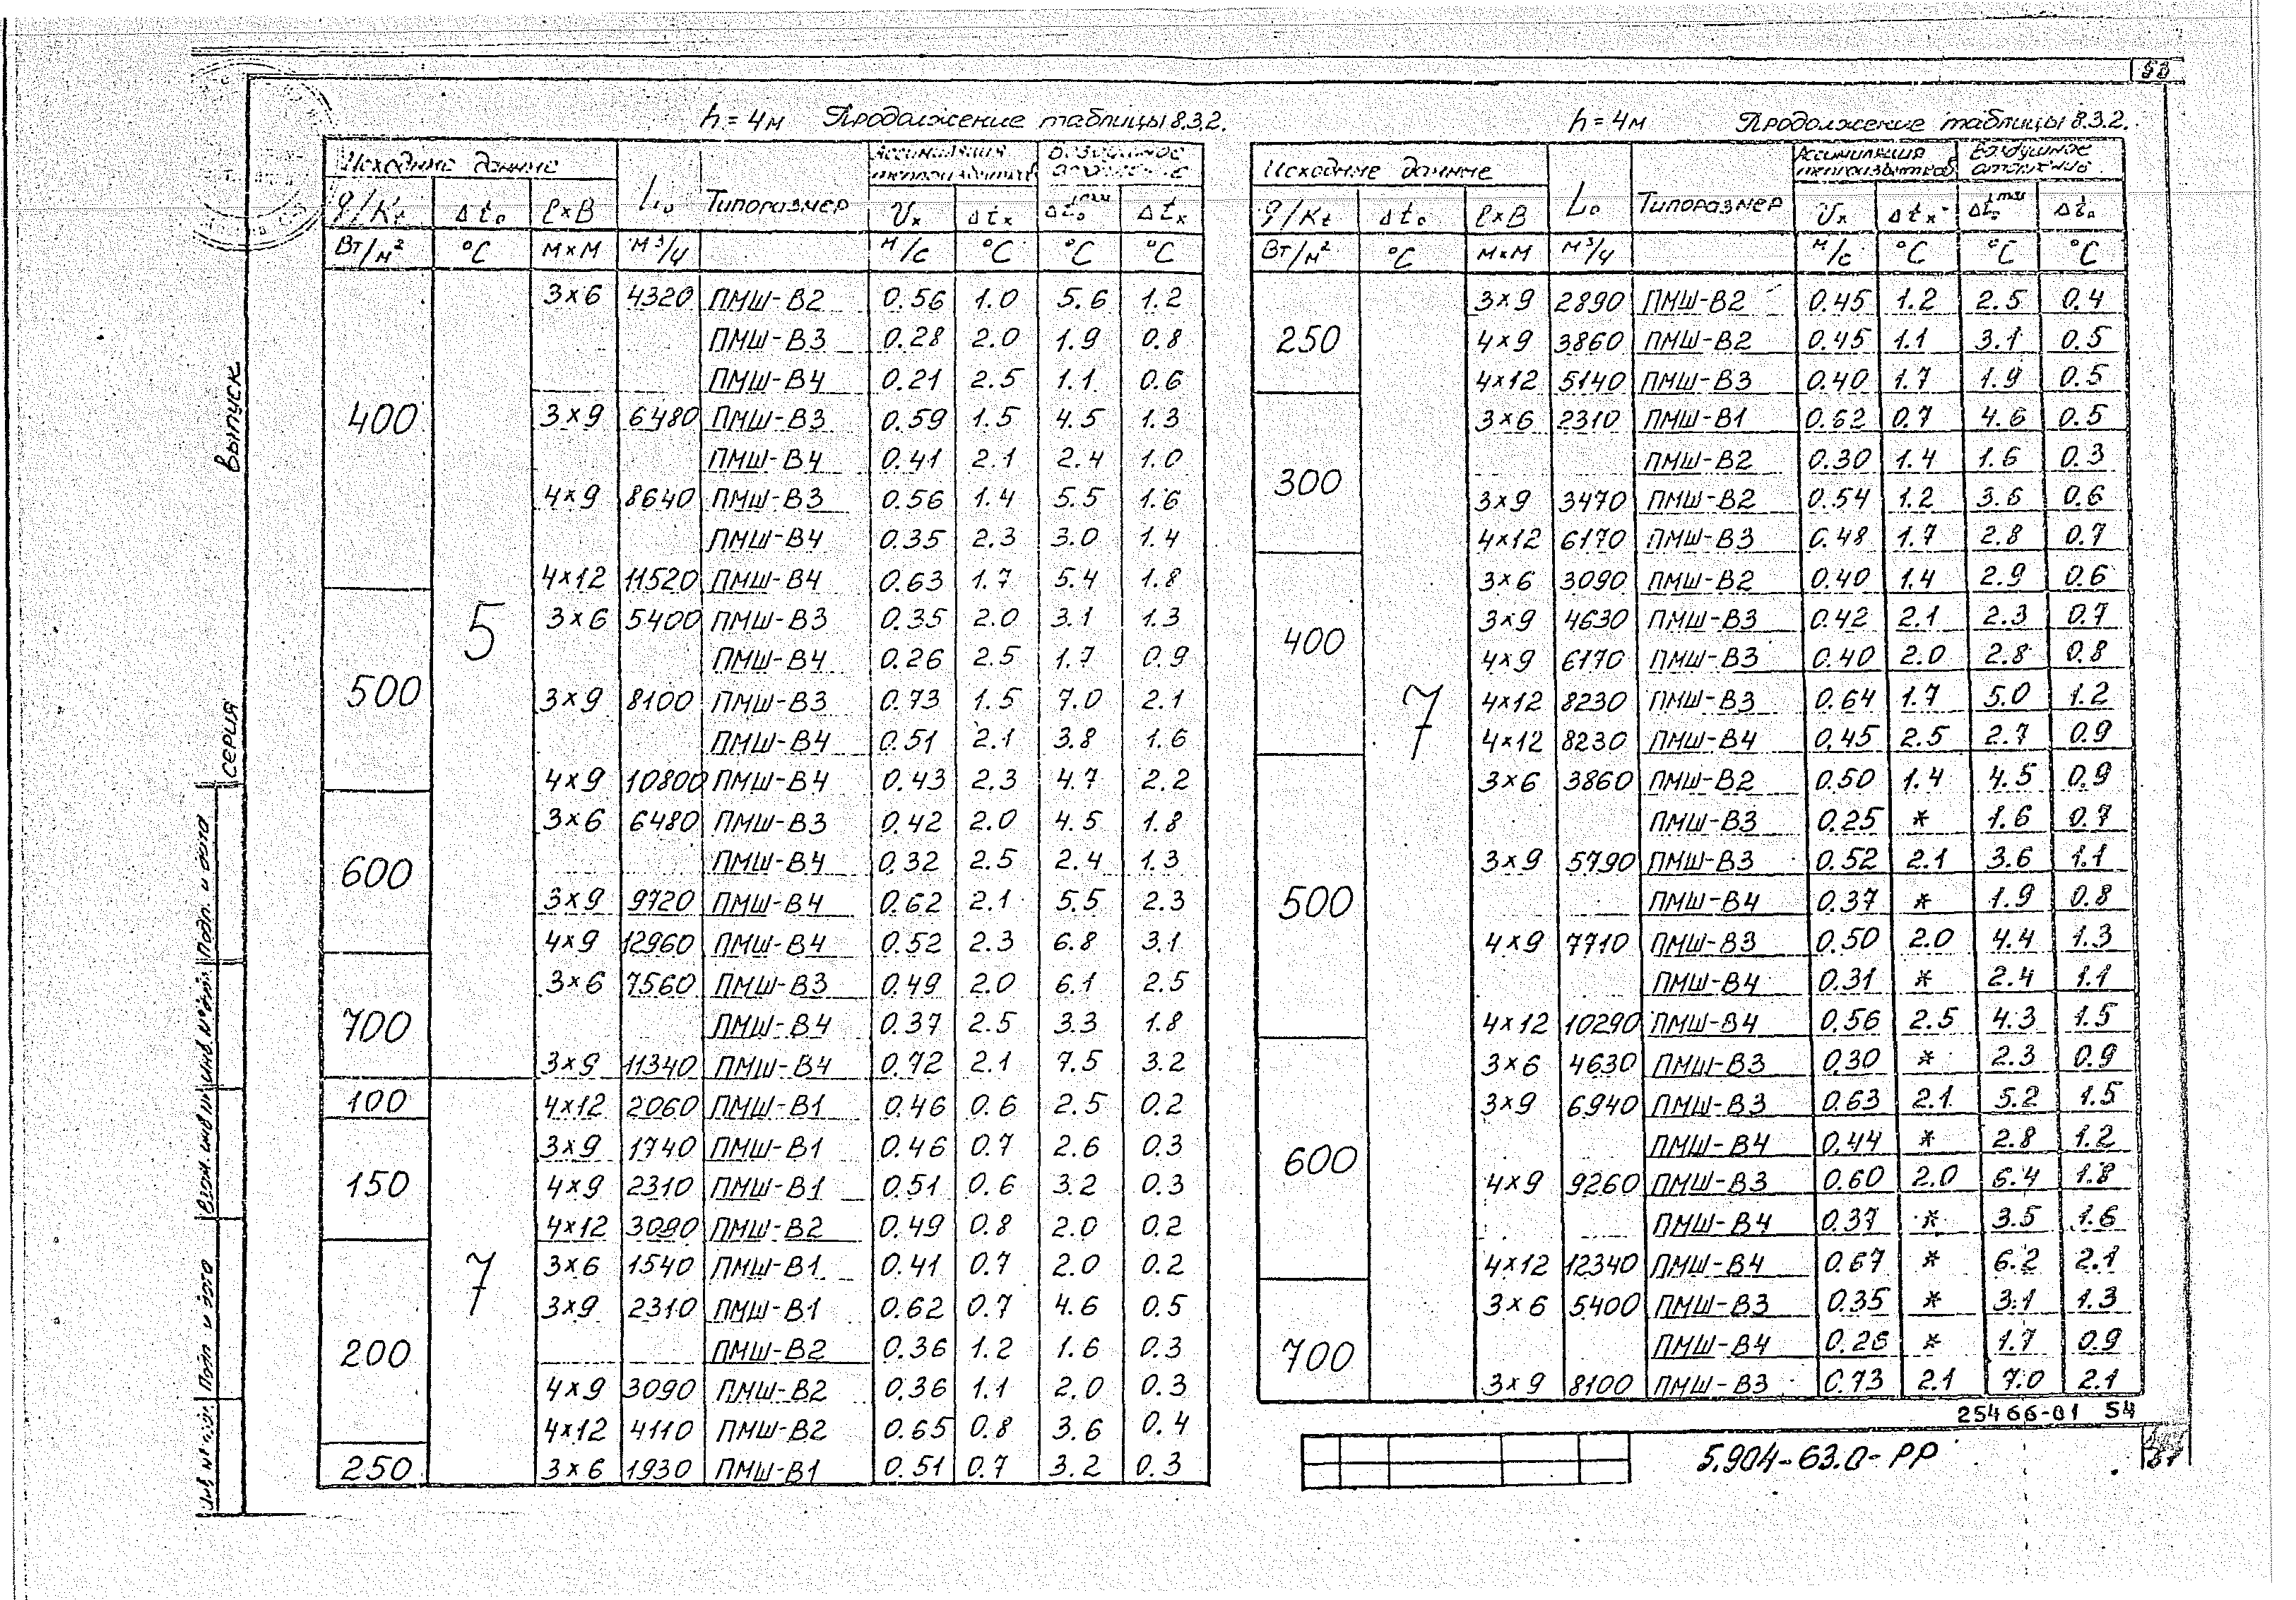 53
h = 4м Продолжение таблицы 8.3.2.
Исходные данные L₀ Типоразмер Ассимиляция теплоизбытков Воздушное отопление
q/Kt Δt₀ l×B Vx Δtx Δt₀max Δtx
Вт/м² °С м×м м³/ч м/с °С °С °С
400 5 3×6 4320 ПМШ-В2 0.56 1.0 5.6 1.2
ПМШ-В3 0.28 2.0 1.9 0.8
ПМШ-В4 0.21 2.5 1.1 0.6
3×9 6480 ПМШ-В3 0.59 1.5 4.5 1.3
ПМШ-В4 0.41 2.1 2.4 1.0
4×9 8640 ПМШ-В3 0.56 1.4 5.5 1.6
ПМШ-В4 0.35 2.3 3.0 1.4
4×12 11520 ПМШ-В4 0.63 1.7 5.4 1.8
500 3×6 5400 ПМШ-В3 0.35 2.0 3.1 1.3
ПМШ-В4 0.26 2.5 1.7 0.9
3×9 8100 ПМШ-В3 0.73 1.5 7.0 2.1
ПМШ-В4 0.51 2.1 3.8 1.6
4×9 10800 ПМШ-В4 0.43 2.3 4.7 2.2
600 3×6 6480 ПМШ-В3 0.42 2.0 4.5 1.8
ПМШ-В4 0.32 2.5 2.4 1.3
3×9 9720 ПМШ-В4 0.62 2.1 5.5 2.3
4×9 12960 ПМШ-В4 0.52 2.3 6.8 3.1
700 3×6 7560 ПМШ-В3 0.49 2.0 6.1 2.5
ПМШ-В4 0.37 2.5 3.3 1.8
3×9 11340 ПМШ-В4 0.72 2.1 7.5 3.2
100 7 4×12 2060 ПМШ-В1 0.46 0.6 2.5 0.2
150 3×9 1740 ПМШ-В1 0.46 0.7 2.6 0.3
4×9 2310 ПМШ-В1 0.51 0.6 3.2 0.3
4×12 3090 ПМШ-В2 0.49 0.8 2.0 0.2
200 3×6 1540 ПМШ-В1 0.41 0.7 2.0 0.2
3×9 2310 ПМШ-В1 0.62 0.7 4.6 0.5
ПМШ-В2 0.36 1.2 1.6 0.3
4×9 3090 ПМШ-В2 0.36 1.1 2.0 0.3
4×12 4110 ПМШ-В2 0.65 0.8 3.6 0.4
250 3×6 1930 ПМШ-В1 0.51 0.7 3.2 0.3
h = 4м Продолжение таблицы 8.3.2.
Исходные данные L₀ Типоразмер Ассимиляция теплоизбытков Воздушное отопление
q/Kt Δt₀ l×B Vx Δtx Δt₀max Δt₀
Вт/м² °С м×м м³/ч м/с °С °С °С
250 7 3×9 2890 ПМШ-В2 0.45 1.2 2.5 0.4
4×9 3860 ПМШ-В2 0.45 1.1 3.1 0.5
4×12 5140 ПМШ-В3 0.40 1.7 1.9 0.5
300 3×6 2310 ПМШ-В1 0.62 0.7 4.6 0.5
ПМШ-В2 0.30 1.4 1.6 0.3
3×9 3470 ПМШ-В2 0.54 1.2 3.6 0.6
4×12 6170 ПМШ-В3 0.48 1.7 2.8 0.7
400 3×6 3090 ПМШ-В2 0.40 1.4 2.9 0.6
3×9 4630 ПМШ-В3 0.42 2.1 2.3 0.7
4×9 6170 ПМШ-В3 0.40 2.0 2.8 0.8
4×12 8230 ПМШ-В3 0.64 1.7 5.0 1.2
4×12 8230 ПМШ-В4 0.45 2.5 2.7 0.9
500 3×6 3860 ПМШ-В2 0.50 1.4 4.5 0.9
ПМШ-В3 0.25 * 1.6 0.7
3×9 5790 ПМШ-В3 0.52 2.1 3.6 1.1
ПМШ-В4 0.37 * 1.9 0.8
4×9 7710 ПМШ-В3 0.50 2.0 4.4 1.3
ПМШ-В4 0.31 * 2.4 1.1
4×12 10290 ПМШ-В4 0.56 2.5 4.3 1.5
600 3×6 4630 ПМШ-В3 0.30 * 2.3 0.9
3×9 6940 ПМШ-В3 0.63 2.1 5.2 1.5
ПМШ-В4 0.44 * 2.8 1.2
4×9 9260 ПМШ-В3 0.60 2.0 6.4 1.8
ПМШ-В4 0.37 * 3.5 1.6
4×12 12340 ПМШ-В4 0.67 * 6.2 2.1
700 3×6 5400 ПМШ-В3 0.35 * 3.1 1.3
ПМШ-В4 0.26 * 1.7 0.9
3×9 8100 ПМШ-В3 0.73 2.1 7.0 2.1
25466-01 54
5.904-63.0-РР
Выпуск
серия
Подп. и дата
Взам. инв №
Подп и дата